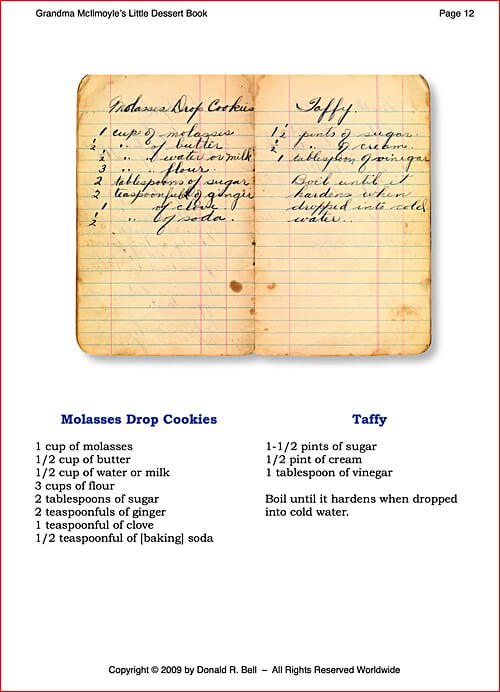 Grandma McIlmoyle's Little Dessert Book
Page 12
Molasses Drop Cookies
1 cup of molasses
1/2 " of butter
1/2 " " water or milk
3 " " flour.
2 tablespoons of sugar
2 teaspoonfuls of ginger
1 " of clove
1/2 " of soda.
Taffy.
1 1/2 pints of sugar.
1/2 " of cream.
1 tablespoon of vinegar
Boil until it
hardens when
dropped into cold
water.
Molasses Drop Cookies
1 cup of molasses
1/2 cup of butter
1/2 cup of water or milk
3 cups of flour
2 tablespoons of sugar
2 teaspoonfuls of ginger
1 teaspoonful of clove
1/2 teaspoonful of [baking] soda
Taffy
1-1/2 pints of sugar
1/2 pint of cream
1 tablespoon of vinegar
Boil until it hardens when dropped
into cold water.
Copyright © 2009 by Donald R. Bell – All Rights Reserved Worldwide